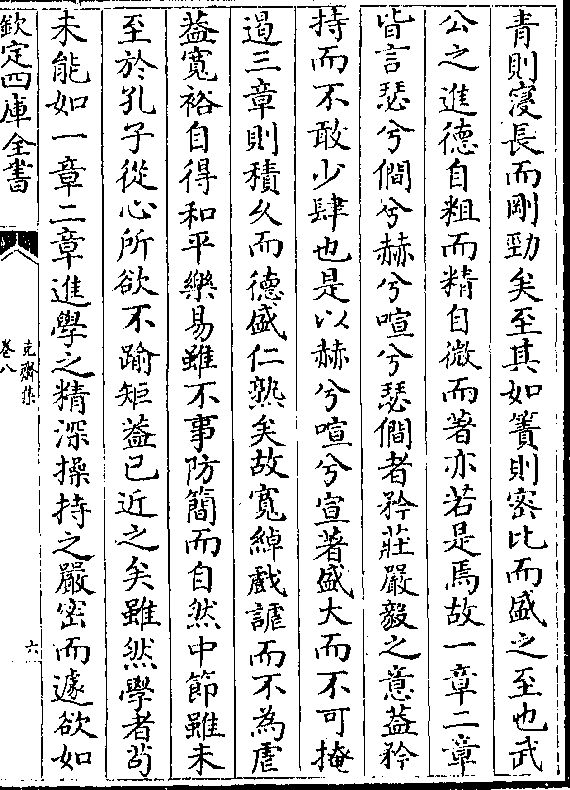 青則寖長而剛勁矣至其如簀則密比而盛之至也武
公之進德自粗而精自微而著亦若是焉故一章二章
皆言瑟兮僩兮赫兮喧兮瑟僩者矜莊嚴毅之意葢矜
持而不敢少肆也是以赫兮喧兮宣著盛大而不可掩
過三章則積久而德盛仁熟矣故寬綽戲謔而不為虐
葢寬裕自得和平樂易雖不事防簡而自然中節雖未
至於孔子從心所欲不踰矩葢已近之矣雖然學者茍
未能如一章二章進學之精深操持之嚴密而遽欲如
欽定四庫全書
克齋集
卷八
六